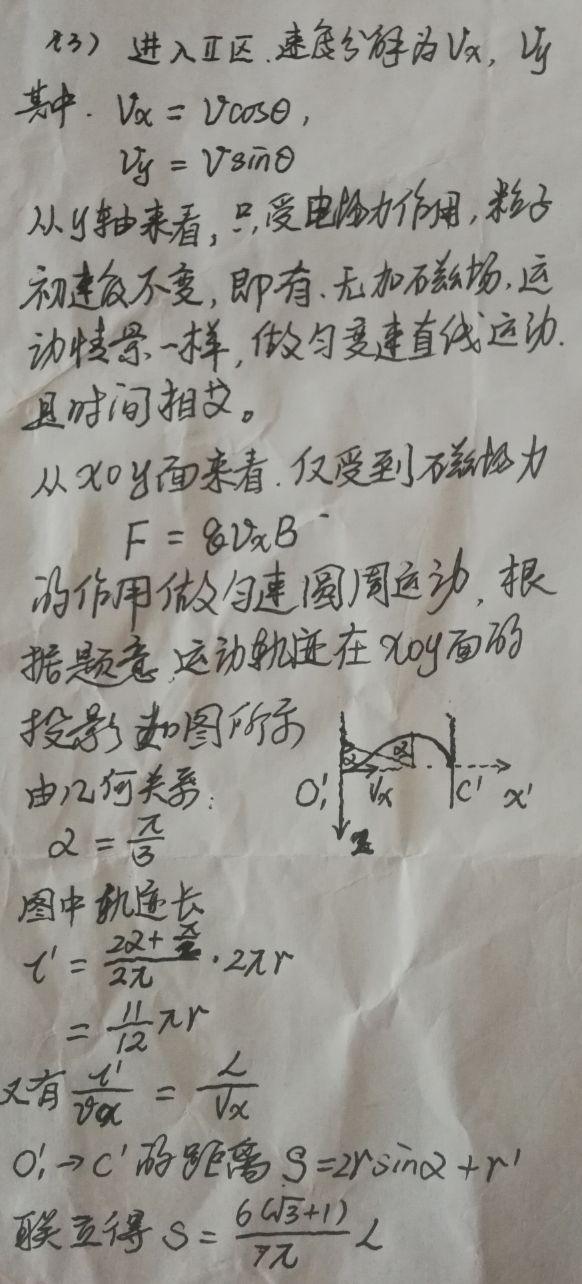 (3) 进入Ⅱ区.速度分解为Vx, Vy
其中. Vx = Vcosθ,
Vy = Vsinθ
从y轴来看,只受电场力作用,粒子
初速度不变,即有、无加磁场,运
动情景一样,做匀变速直线运动.
且时间相等。
从xoy面来看.仅受到磁场力
F = qVxB
的作用做匀速圆周运动,根
据题意,运动轨迹在xoy面的
投影如图所示
由几何关系:
α α O₁' Vx C' x' z
α = π/3
图中轨迹长
l' = (2α + π/2)/2π · 2πr
= 11/12 πr
又有 l'/Vx = L/Vx
O₁'→C' 的距离 S = 2rsinα + r'
联立得 S = 6(√3+1)/7π L